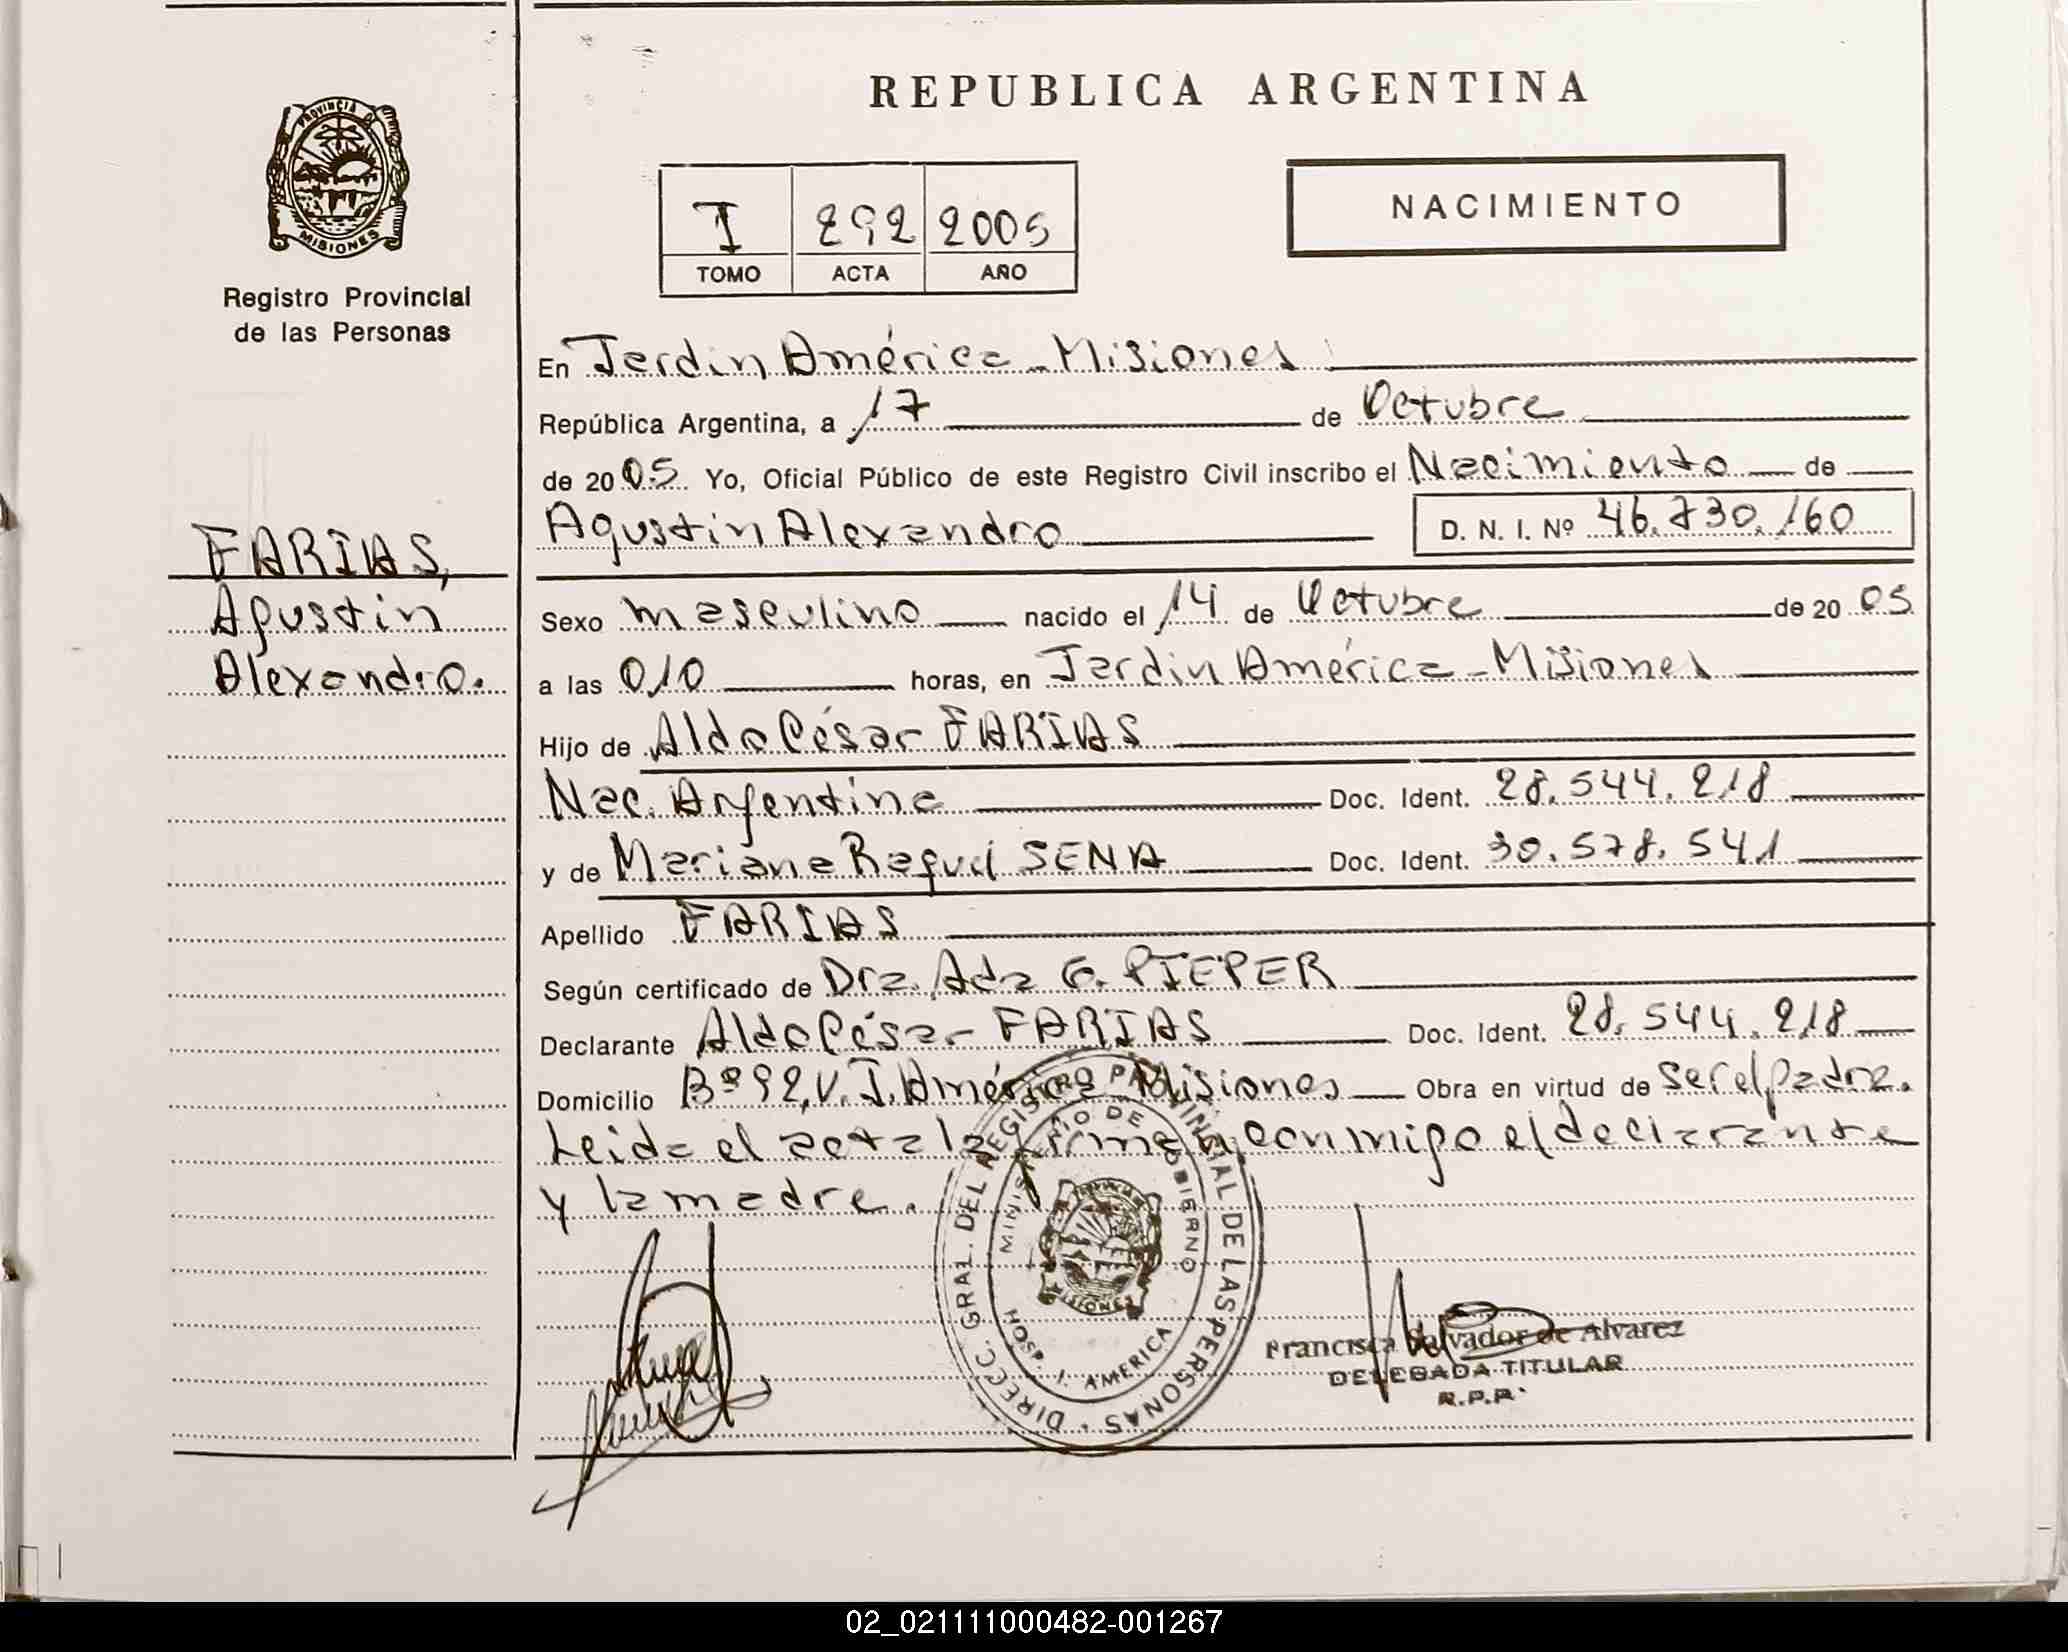 REPUBLICA ARGENTINA
PROVINCIA DE
MISIONES
Registro Provincial
de las Personas
I 292 2005
TOMO ACTA AÑO
NACIMIENTO
En Jardin América - Misiones
República Argentina, a 17 de Octubre
de 2005. Yo, Oficial Público de este Registro Civil inscribo el Nacimiento de
Agustin Alexandro D. N. I. Nº 46.730.160
FARIAS,
Agustin
Alexandro.
Sexo masculino nacido el 14 de Octubre de 2005
a las 0,10 horas, en Jardin América - Misiones
Hijo de Aldo César FARIAS
Nac. Argentina Doc. Ident. 28.544.218
y de Mariana Raquel SENA Doc. Ident. 30.578.541
Apellido FARIAS
Según certificado de Dra. Ada G. PIEPER
Declarante Aldo César FARIAS Doc. Ident. 28.544.218
Domicilio Bº 92,V. J. América Misiones Obra en virtud de ser el padre.
Leida el acta la firman conmigo el declarante
y la madre.
DIRECC. GRAL. DEL REGISTRO PROVINCIAL DE LAS PERSONAS
MINISTERIO DE GOBIERNO
MISIONES
HOSP. J. AMERICA
Francisca Salvador de Alvarez
DELEGADA TITULAR
R.P.P.
02_021111000482-001267